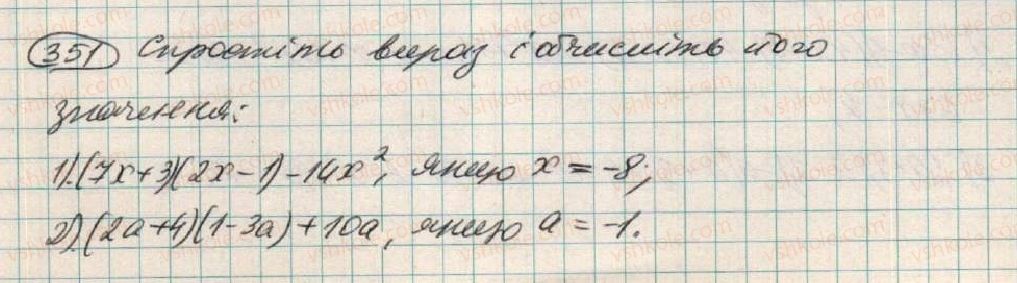 351 Спростіть вираз і обчисліть його
значення:
1).(7x+3)(2x-1)-14x², якщо x = -8;
2).(2a+4)(1-3a)+10a, якщо a = -1.